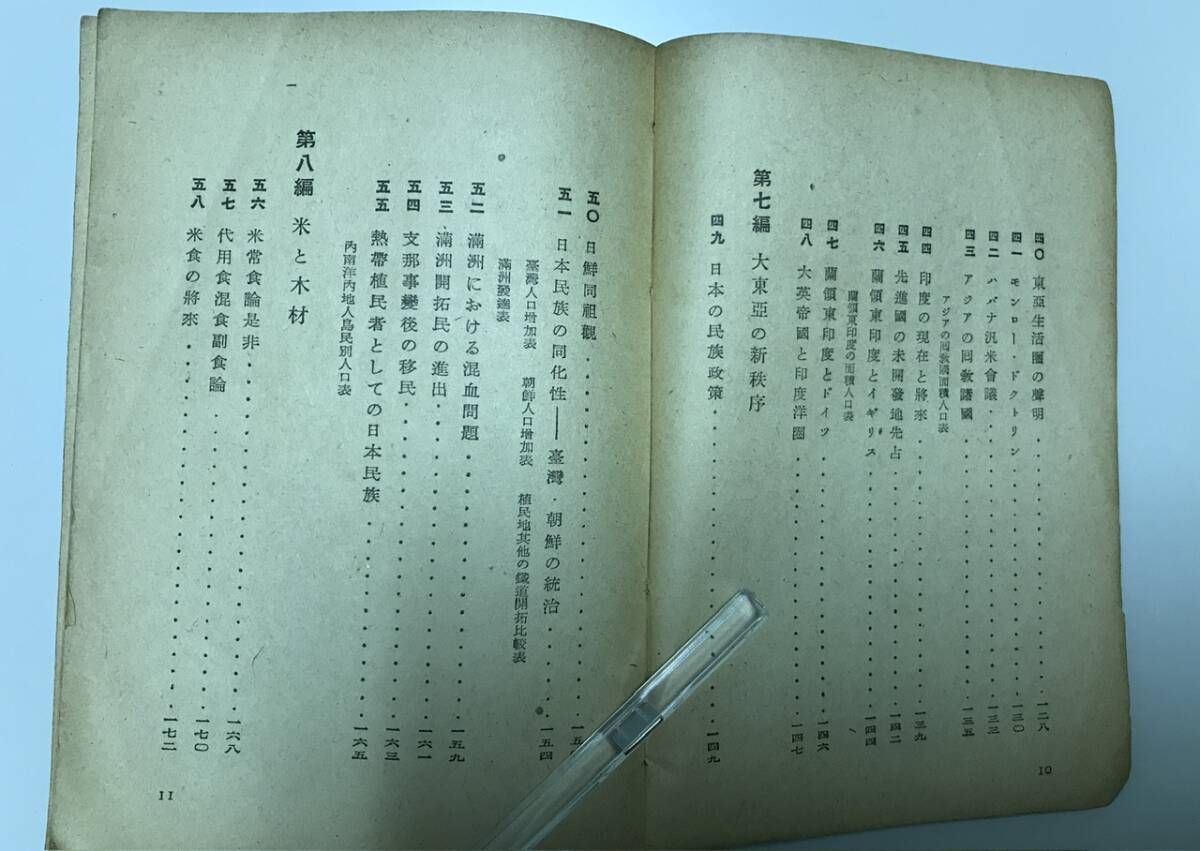 四〇 東亞生活圏の聲明・・・・・・・・・・・・・・一二八
四一 モンロー・ドクトリン・・・・・・・・・・・・一三〇
四二 ハバナ汎米會議・・・・・・・・・・・・・・・一三三
四三 アジアの回敎諸國・・・・・・・・・・・・・・一三五
アジアの回敎國面積人口表
四四 印度の現在と將來・・・・・・・・・・・・・・一三九
四五 先進國の未開發地先占・・・・・・・・・・・・一四二
四六 蘭領東印度とイギリス・・・・・・・・・・・・一四四
蘭領東印度の面積人口表
四七 蘭領東印度とドイツ・・・・・・・・・・・・・一四六
四八 大英帝國と印度洋圏・・・・・・・・・・・・・一四七
第七編 大東亞の新秩序
四九 日本の民族政策・・・・・・・・・・・・・・・一四九
10
五〇 日鮮同祖觀・・・・・・・・・・・・・・・・・
五一 日本民族の同化性――臺灣・朝鮮の統治・・・・・一五四
臺灣人口增加表 朝鮮人口增加表 植民地其他の鐵道開拓比較表
滿洲發達表
五二 滿洲における混血問題・・・・・・・・・・・・一五九
五三 滿洲開拓民の進出・・・・・・・・・・・・・・一六一
五四 支那事變後の移民・・・・・・・・・・・・・・一六三
五五 熱帶植民者としての日本民族・・・・・・・・・一六五
內南洋內地人島民別人口表
第八編 米と木材
五六 米常食論是非・・・・・・・・・・・・・・・・一六八
五七 代用食混食副食論・・・・・・・・・・・・・・一七〇
五八 米食の將來・・・・・・・・・・・・・・・・・一七二
11